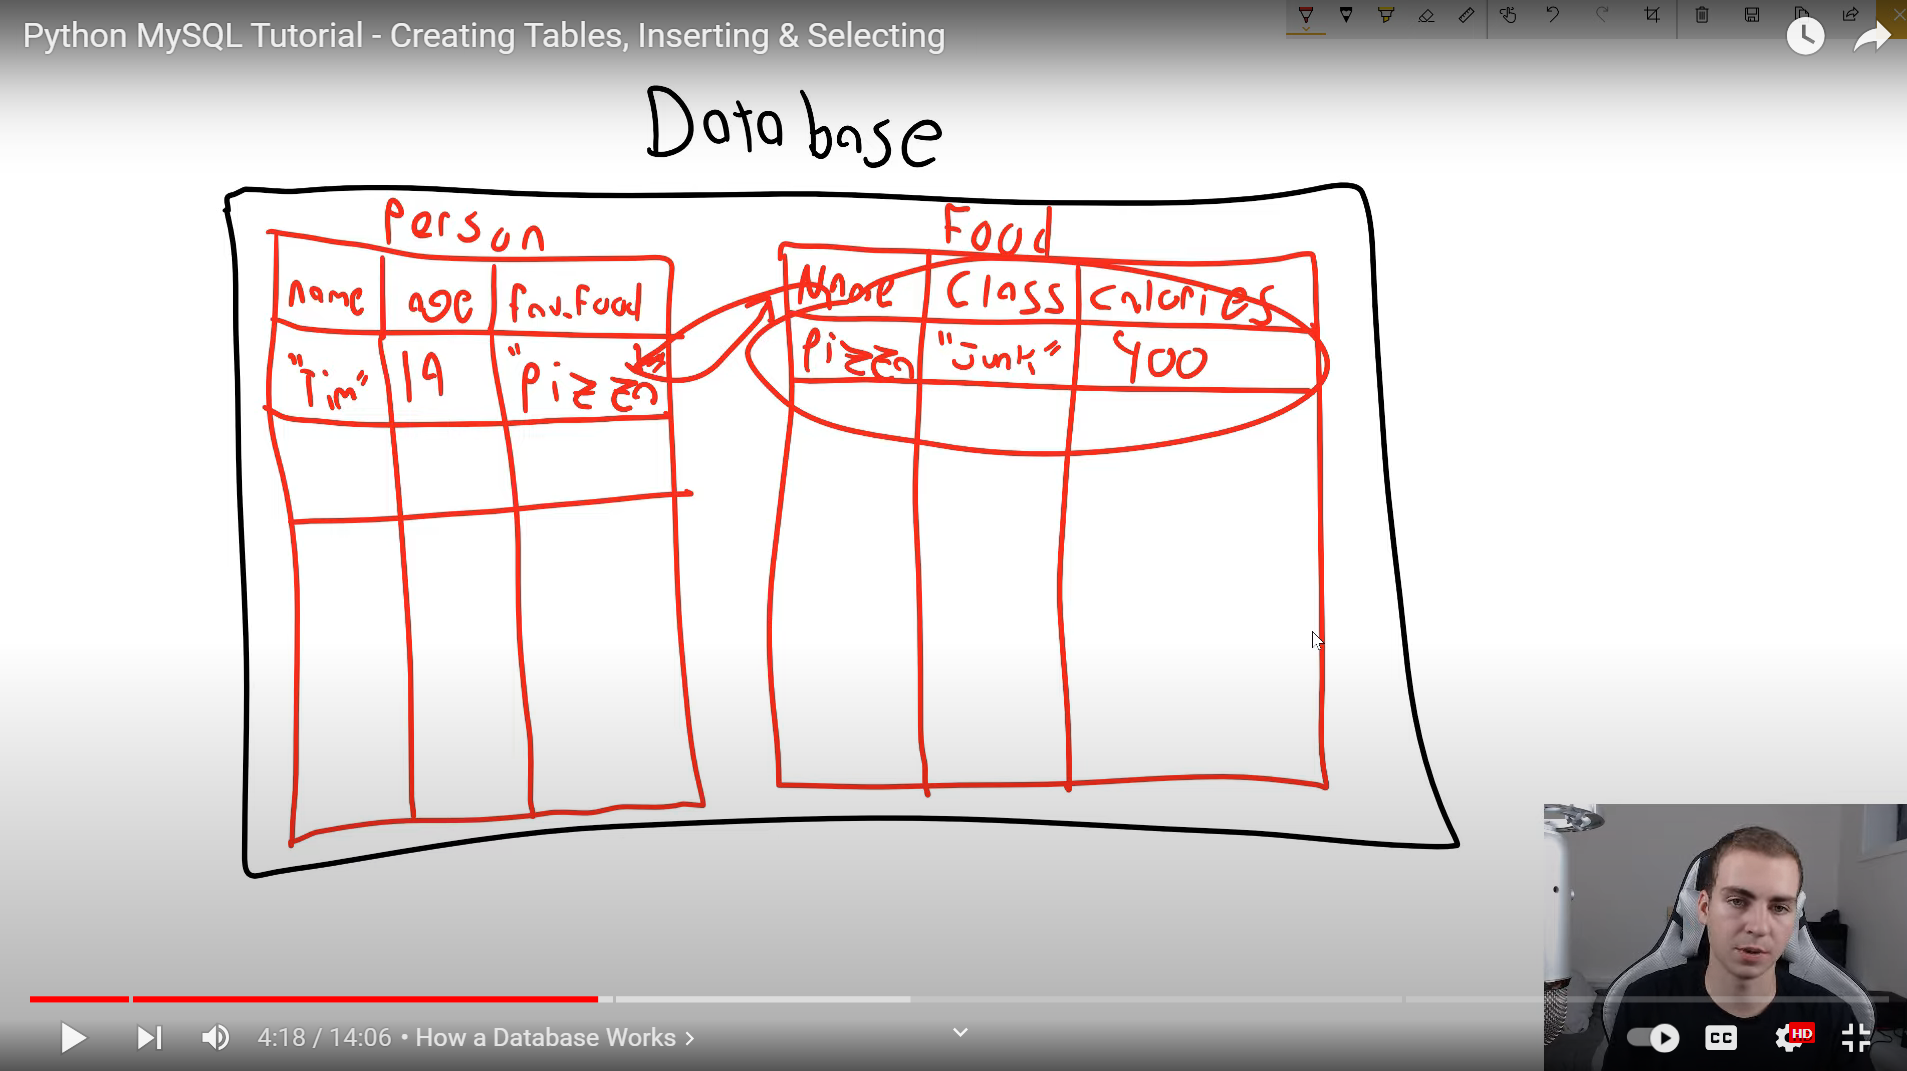 Python MySQL Tutorial - Creating Tables, Inserting & Selecting
Database
Person
name age fav.food
"Tim" 19 "Pizza
Food
Name Class Calories
Pizza "Junk" 400
4:18 / 14:06 • How a Database Works >
CC HD